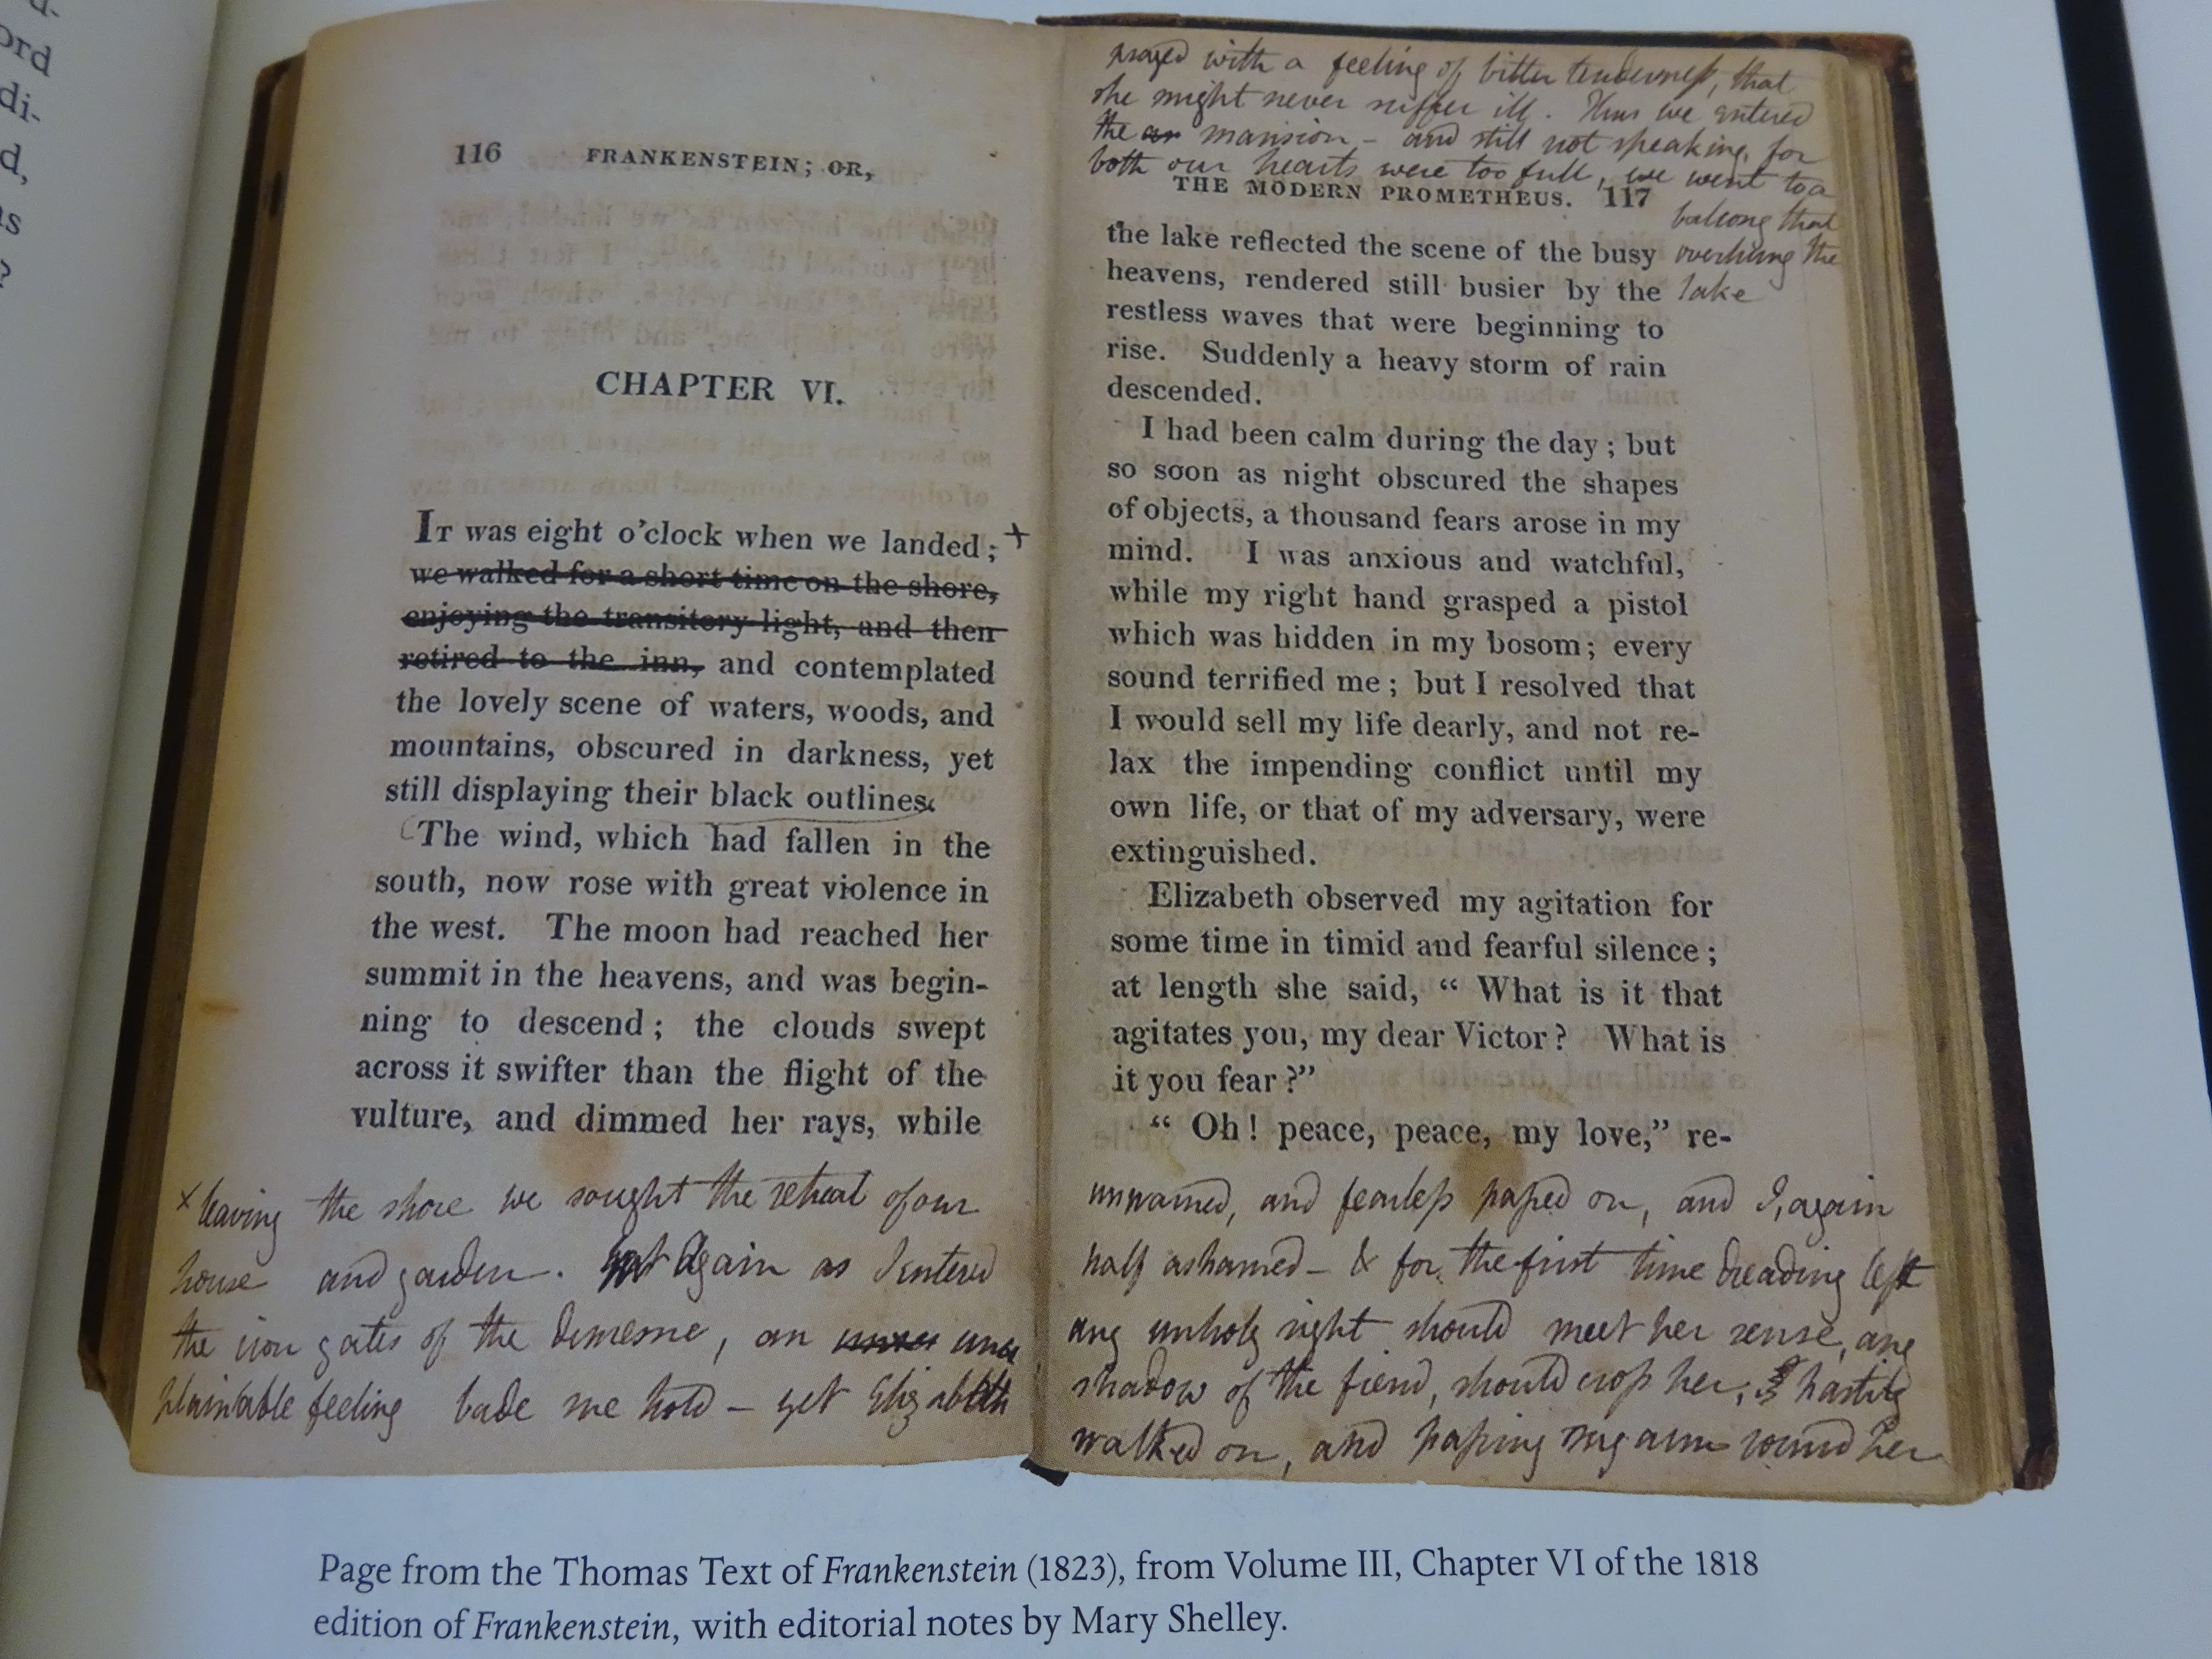 ord
di-
d,
?
116 FRANKENSTEIN; OR,
CHAPTER VI.
IT was eight o'clock when we landed; +
we walked for a short time on the shore,
enjoying the transitory light, and then
retired to the inn, and contemplated
the lovely scene of waters, woods, and
mountains, obscured in darkness, yet
still displaying their black outlines.
The wind, which had fallen in the
south, now rose with great violence in
the west. The moon had reached her
summit in the heavens, and was begin-
ning to descend; the clouds swept
across it swifter than the flight of the
vulture, and dimmed her rays, while
x leaving the shore we sought the retreat of our
house and garden. Again as I entered
the iron gates of the demesne, an une
plainable feeling bade me hold – yet Elizabeth
prayed with a feeling of bitter tenderness, that
she might never suffer ill. Thus we entered
the mansion – and still not speaking, for
both our hearts were too full, we went to a
balcony that
overhung the
lake
THE MODERN PROMETHEUS. 117
the lake reflected the scene of the busy
heavens, rendered still busier by the
restless waves that were beginning to
rise. Suddenly a heavy storm of rain
descended.
I had been calm during the day; but
so soon as night obscured the shapes
of objects, a thousand fears arose in my
mind. I was anxious and watchful,
while my right hand grasped a pistol
which was hidden in my bosom; every
sound terrified me; but I resolved that
I would sell my life dearly, and not re-
lax the impending conflict until my
own life, or that of my adversary, were
extinguished.
Elizabeth observed my agitation for
some time in timid and fearful silence;
at length she said, “ What is it that
agitates you, my dear Victor? What is
it you fear?”
“ Oh! peace, peace, my love,” re-
unwarned, and fearless passed on, and I, again
half ashamed – & for the first time dreading lest
any unholy sight should meet her sense, any
shadow of the fiend, should cross her, hastily
walked on, and passing my arm round her
Page from the Thomas Text of Frankenstein (1823), from Volume III, Chapter VI of the 1818
edition of Frankenstein, with editorial notes by Mary Shelley.